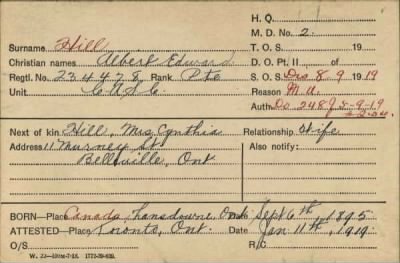 H. Q.
M. D. No. 2.
Surname Hill T. O. S. 19
Christian names Albert Edward D. O. Pt. II of
Regtl. No. 234478 Rank Pte S. O. S. Dis 8 9 1919
Unit C.A.S.C. Reason M.U.
Auth. Do 248 8-9-19
Next of kin Hill, Mrs. Cynthia Relationship Wife
Address 11 Murney St Also notify:
Belleville, Ont
BORN—Place Canada, Lansdowne, Ont Date Sept 6th, 1895.
ATTESTED—Place Toronto, Ont. Date Jan 11th, 1919.
O/S R/C